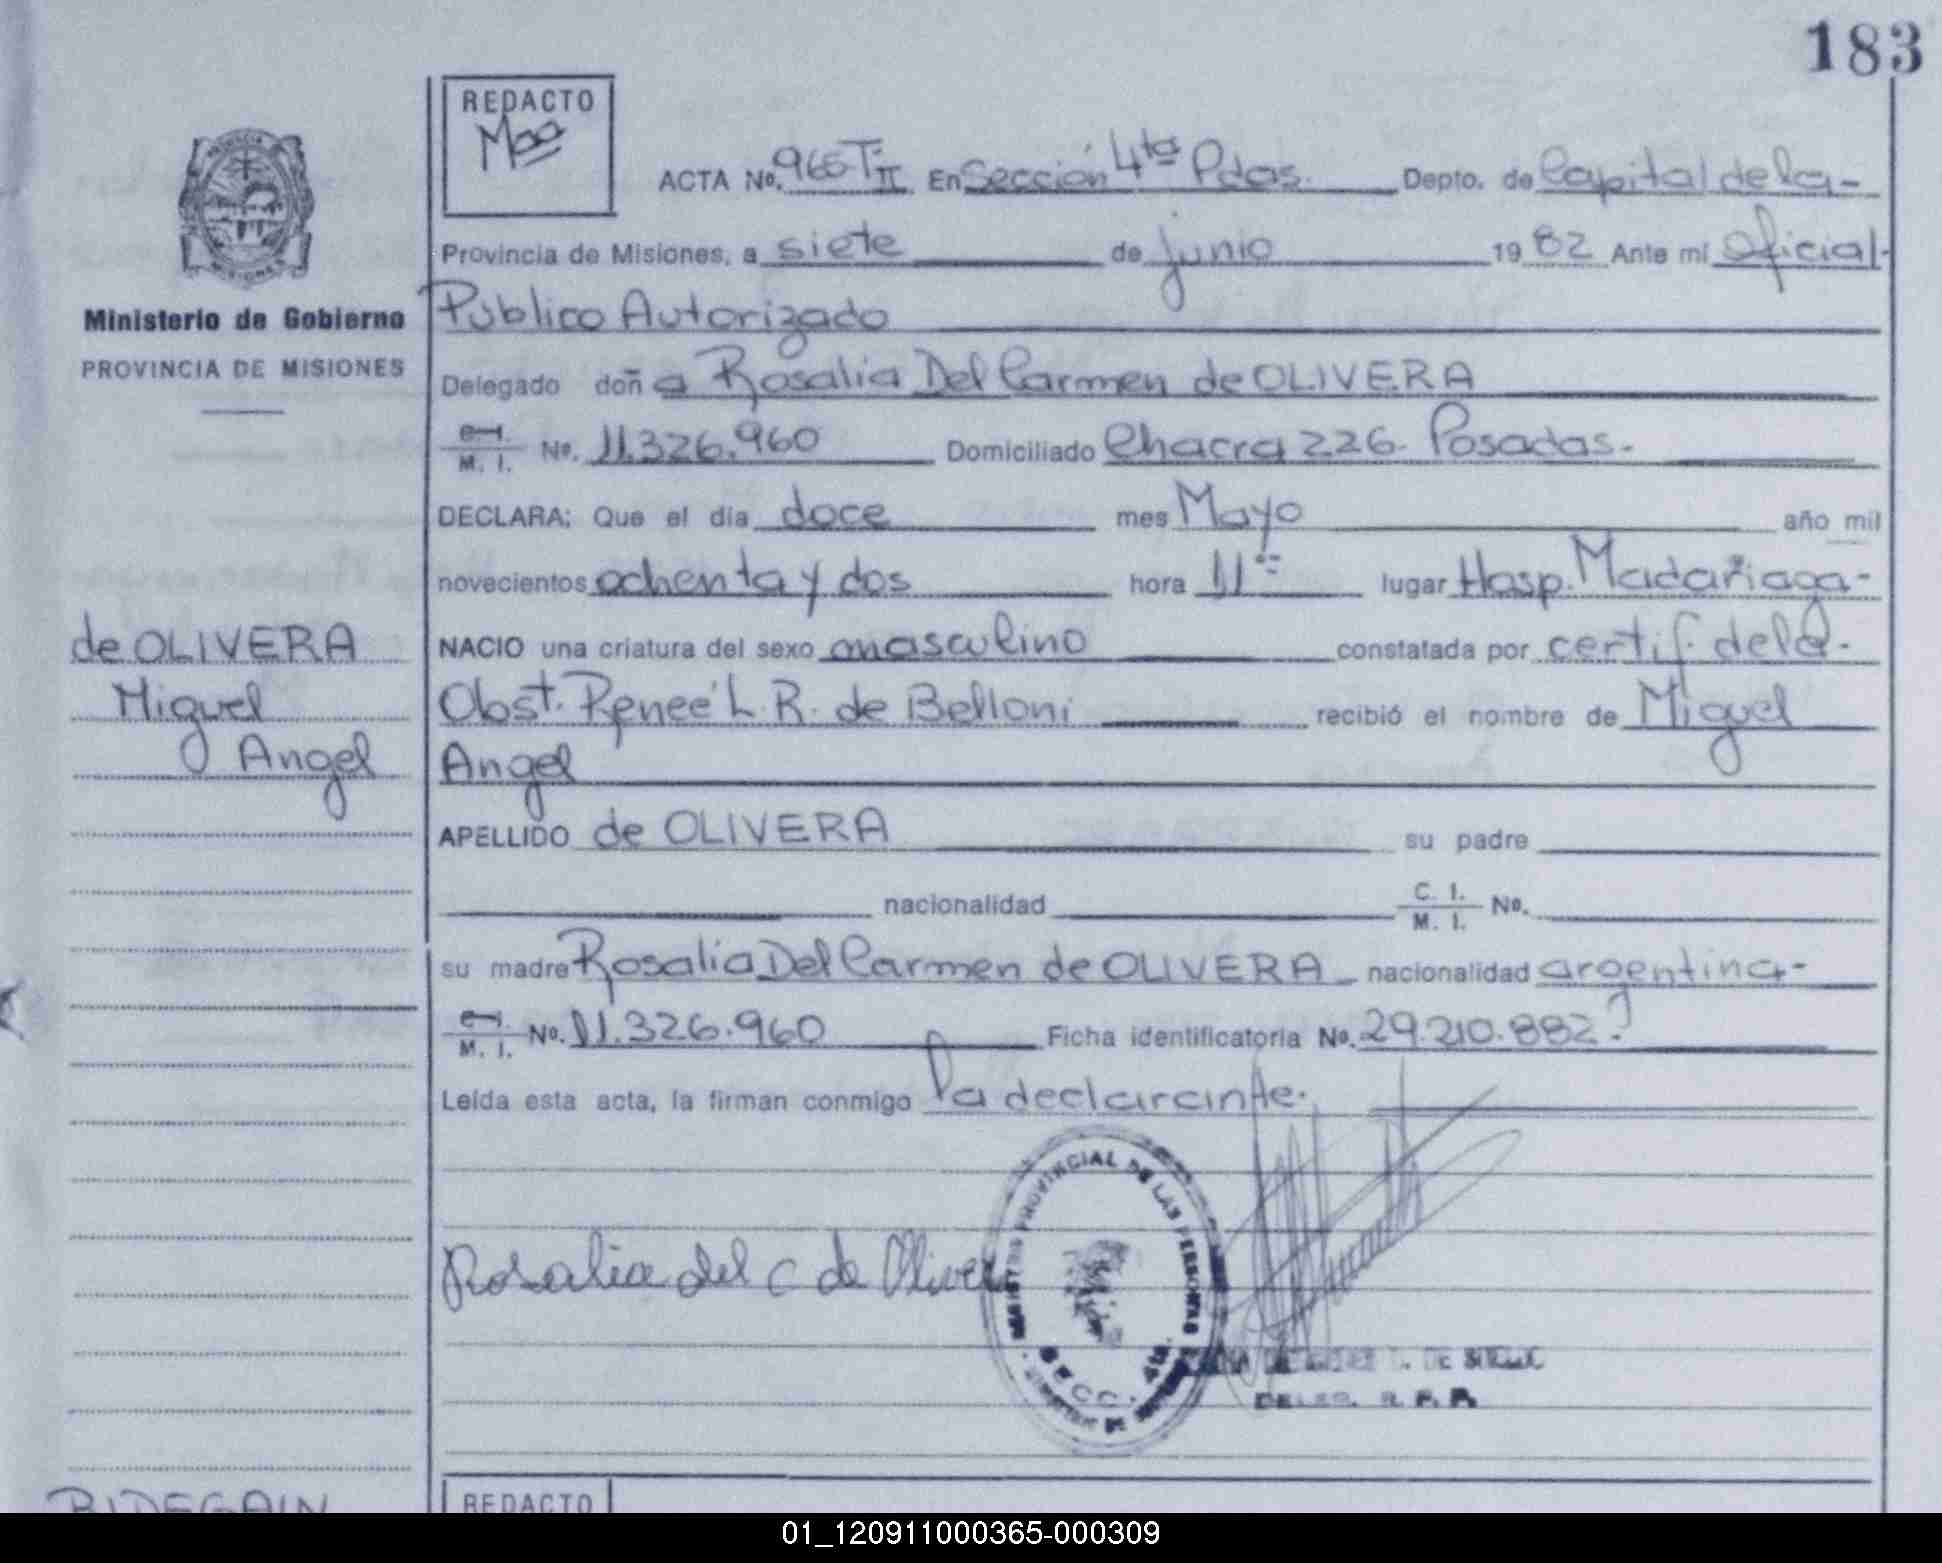 183
REDACTO
Maa
ACTA No. 965 T: II En Sección 4ta Pdas. Depto. de Capital de la-
Provincia de Misiones, a siete de junio 1982 Ante mí Oficial-
Ministerio de Gobierno
PROVINCIA DE MISIONES
Público Autorizado
Delegado doña Rosalia Del Carmen de OLIVERA
C. I. M. I. No. 11.326.960 Domiciliado Chacra 226- Posadas.-
DECLARA: Que el día doce mes Mayo año mil
novecientos ochenta y dos hora 11 lugar Hosp. Madariaga-
de OLIVERA
Miguel
Angel
NACIO una criatura del sexo masculino constatada por certif. de la-
Obst. Reneé L. R. de Belloni recibió el nombre de Miguel
Angel
APELLIDO de OLIVERA su padre
nacionalidad C. I. M. I. No.
su madre Rosalia Del Carmen de OLIVERA nacionalidad argentina-
C. I. M. I. No. 11.326.960 Ficha identificatoria No. 29.210.882?
Leída esta acta, la firman conmigo la declarante.
Rosalia del C de Oliver
REGISTRO PROVINCIAL DE LAS PERSONAS
SECC. 4ta.
DELEG. R. P. P.
BIDEGAIN
REDACTO
01_120911000365-000309